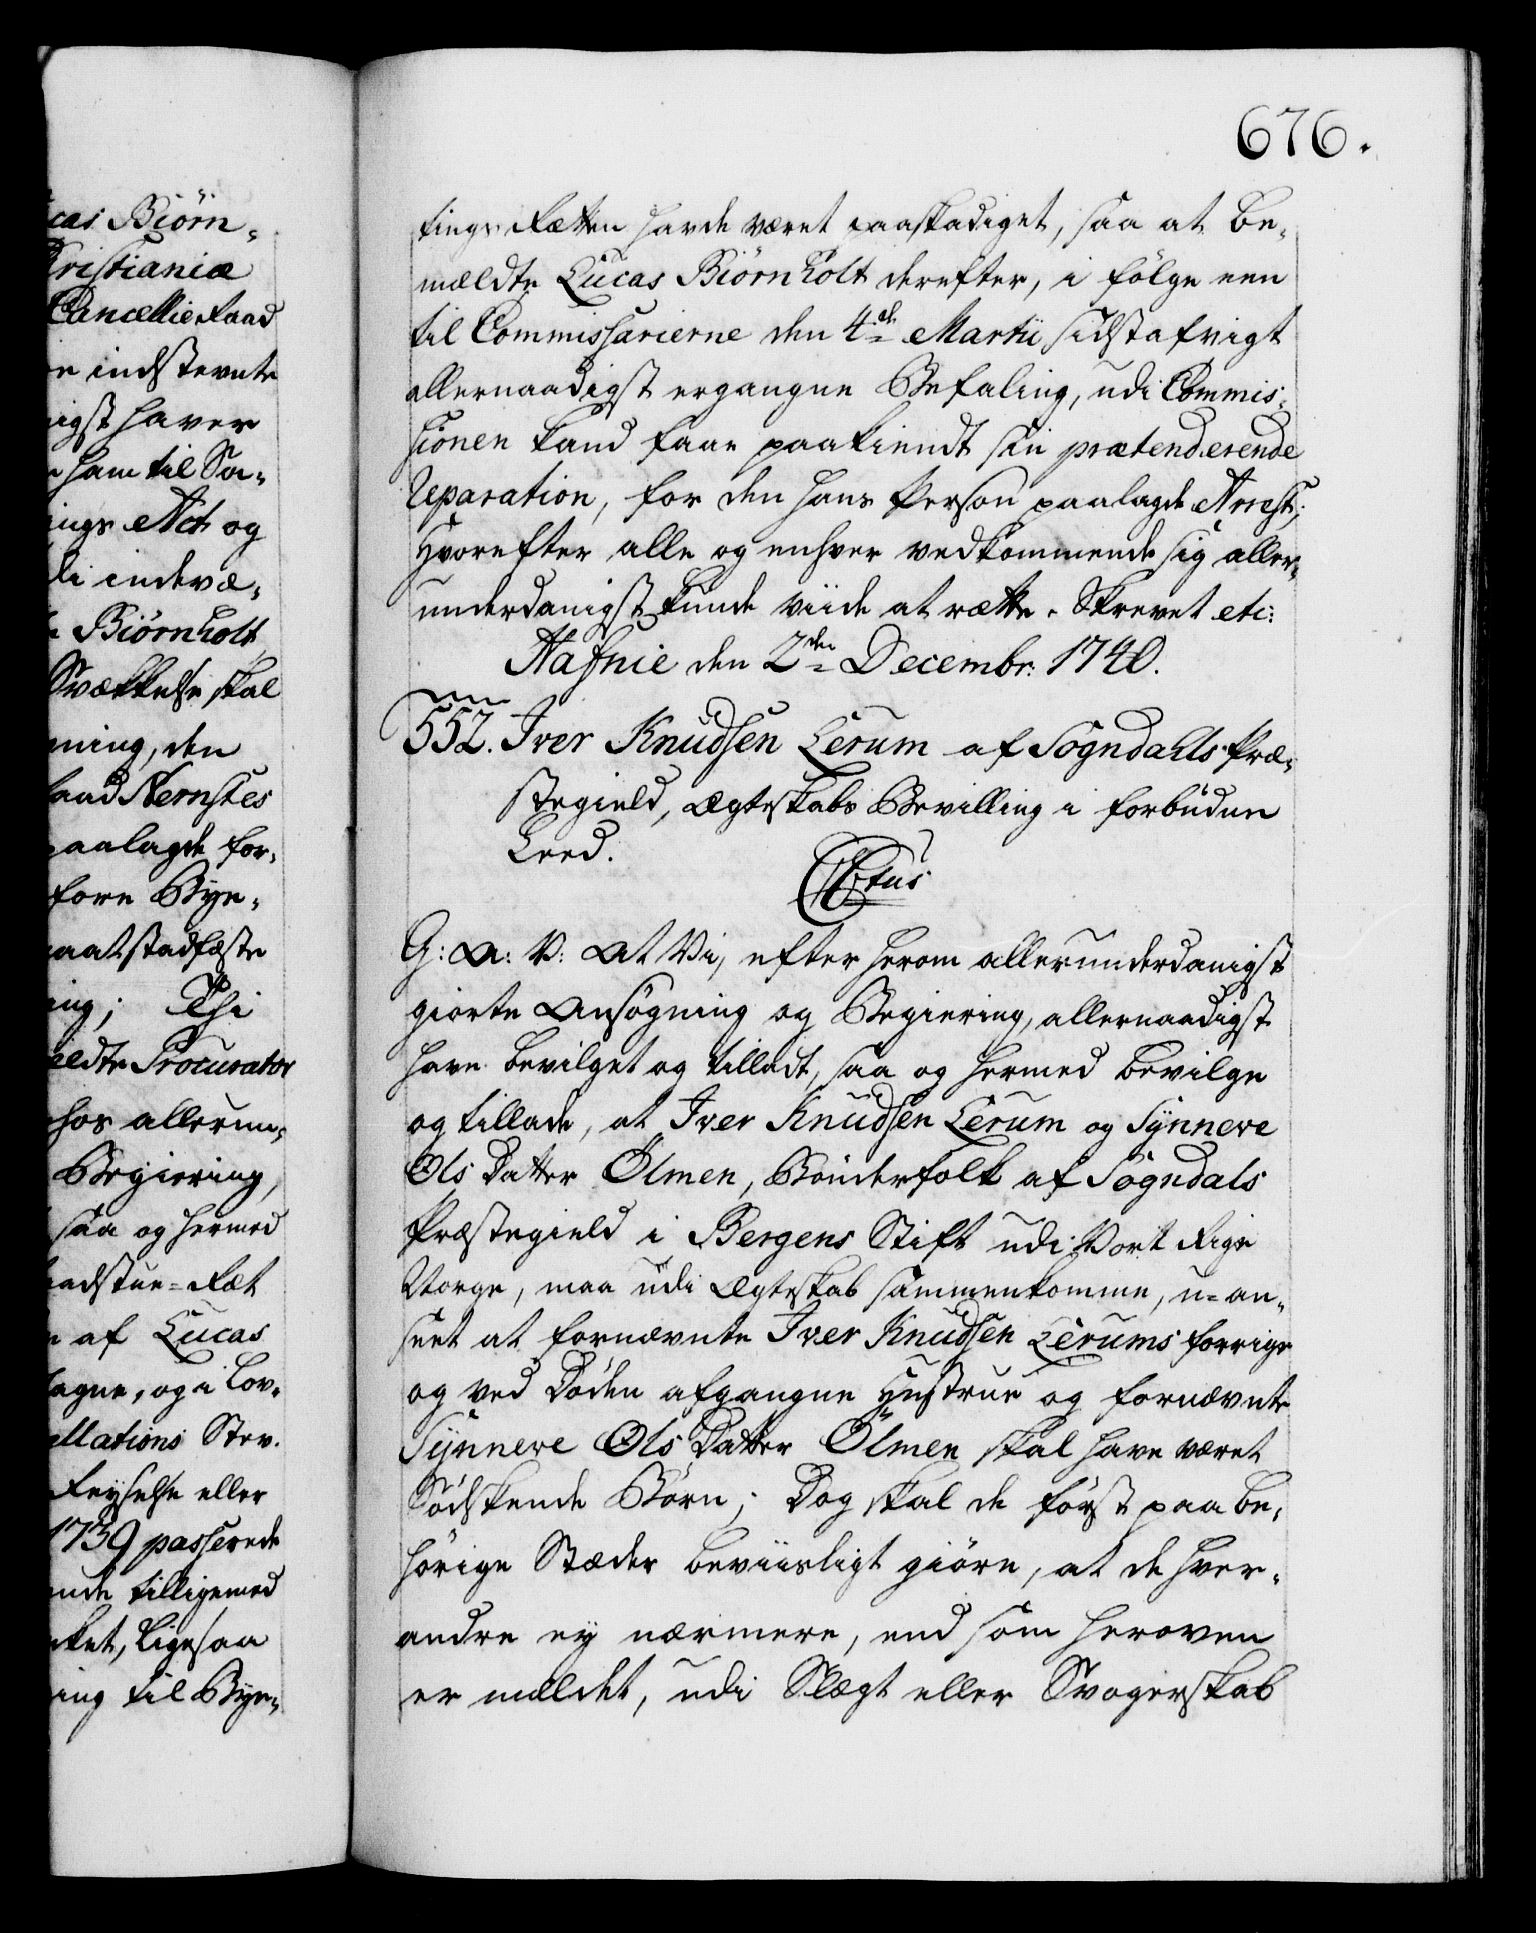 676.
cas Biörn-
Christianiæ
Cancellie Raad
indstevnte
nigst haver
ham til Sa-
ings Act og
di indevæ-
Biörnholt
Svækkelse skal
ning, den
Raad Nernstes
paalagde for-
fore Bye-
stadfæste
ing; Thi
meldte Procurator
hos allerun-
Begiering,
saa og hermed
Raadstue-Ræt
af Lucas
og i Lov-
ellations Stev-
eller
1739 passerede
ende tilligemed
ket, Ligesaa
ing til Bye-
tings Retten havde været paaskadiget, saa at be-
meldte Lucas Biörnholt derefter, i fölge een
til Commissarierne den 4de Martii sidst afvigt
allernaadigst ergangne Befaling, udi Commis-
sionen kand faae paakiendt sin prætenderende
Reparation, for den hans Person paalagde Arrest;
Hvorefter alle og enhver vedkommende sig aller-
underdanigst kunde viide at rætte. Skrevet etc:
Hafniæ den 2den Decembr: 1740.
552. Iver Knudsen Lerum af Sogndahls Præ-
stegield, Ægteskabs Bevilling i forbuden
Leed.
CCtus
G: A: V: At Vi, efter herom allerunderdanigst
giorte Ansögning og Begiering, allernaadigst
have bevilget og tilladt, saa og hermed bevilge
og tillade, at Iver Knudsen Lerum og Synneve
Ols Datter Ölmen, Bönderfolk af Sogndals
Præstegield i Bergens Stift udi Vort Rige
Norge, maa udi Ægteskab sammenkomme, u-an-
seet at fornævnte Iver Knudsen Lerums forrige
og ved Döden afgangne Hustrue og fornævnte
Synneve Ols Datter Ölmen skal have været
Södskende Börn; Dog skal de först paa be-
hörige Stæder beviisligt giöre, at de hver-
andre ey nærmere, end som heroven
er meldet, udi Slægt eller Svogerskab